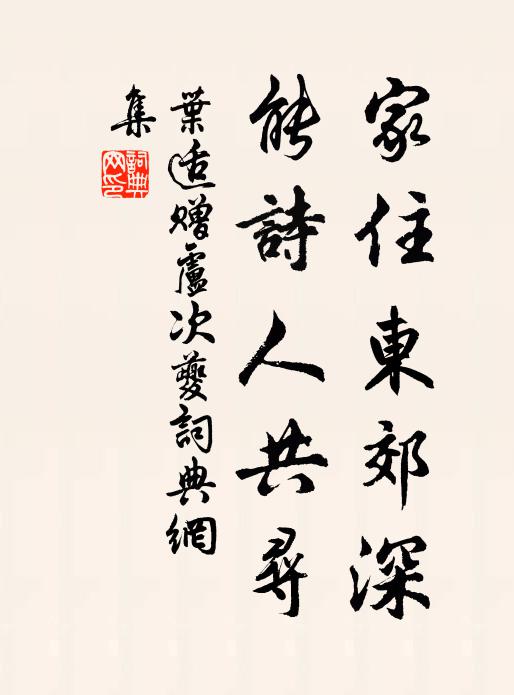 家住東郊深
能詩人共尋
葉适贈盧次夔詞典網
集
詞典
网印